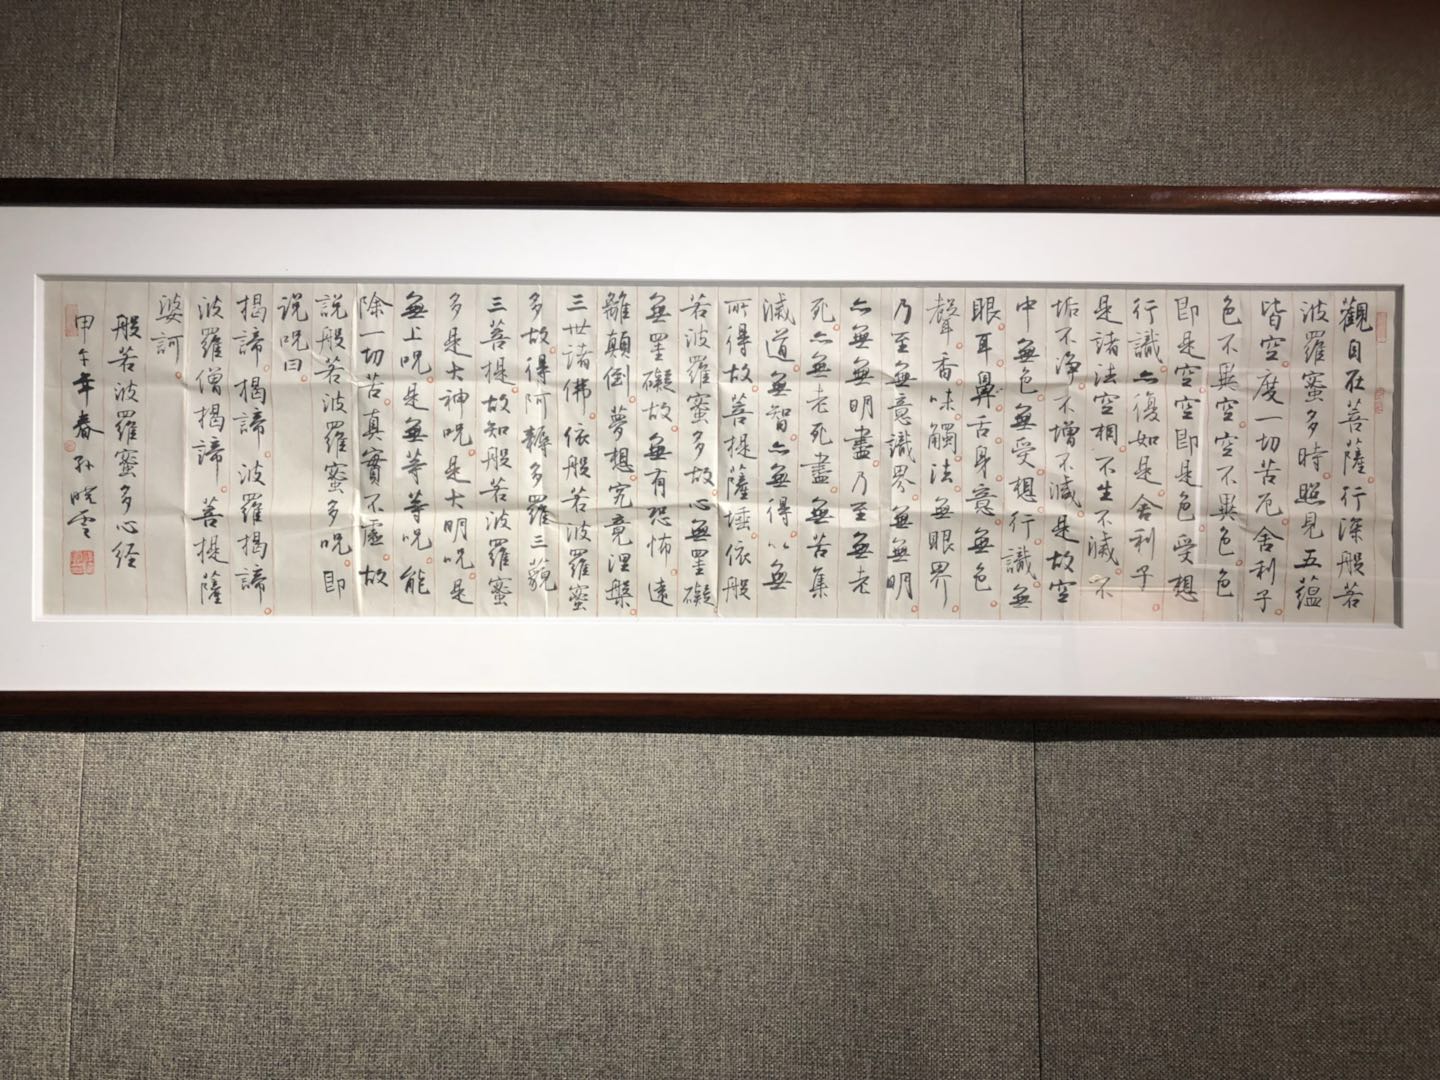 觀自在菩薩行深般若
波羅蜜多時照見五蘊
皆空度一切苦厄舍利子
色不異空空不異色色
即是空空即是色受想
行識亦復如是舍利子
是諸法空相不生不滅不
垢不淨不增不減是故空
中無色無受想行識無
眼耳鼻舌身意無色
聲香味觸法無眼界
乃至無意識界無無明
亦無無明盡乃至無老
死亦無老死盡無苦集
滅道無智亦無得以無
所得故菩提薩埵依般
若波羅蜜多故心無罣礙
無罣礙故無有恐怖遠
離顛倒夢想究竟涅槃
三世諸佛依般若波羅蜜
多故得阿耨多羅三藐
三菩提故知般若波羅蜜
多是大神咒是大明咒是
無上咒是無等等咒能
除一切苦真實不虛故
說般若波羅蜜多咒即
說咒曰
揭諦揭諦波羅揭諦
波羅僧揭諦菩提薩
婆訶
般若波羅蜜多心经
甲午年春孙晓云